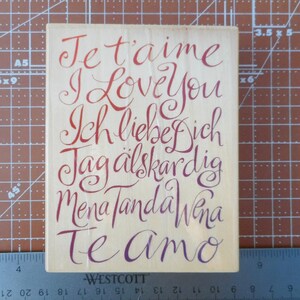 Je t'aime
I Love You
Ich liebe Dich
Jag älskar dig
Mena Tanda Wena
Te amo
WESTCOTT